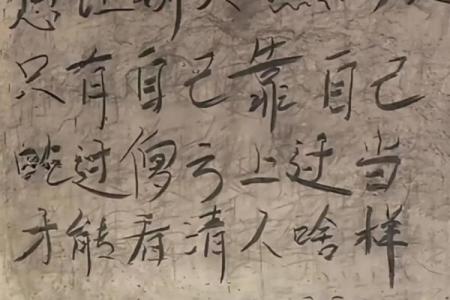 只有自己靠自己
吃过亏上过当
才能看清人啥样